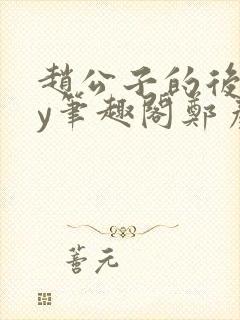 趙公子的後
y筆趣閣鄭
善元